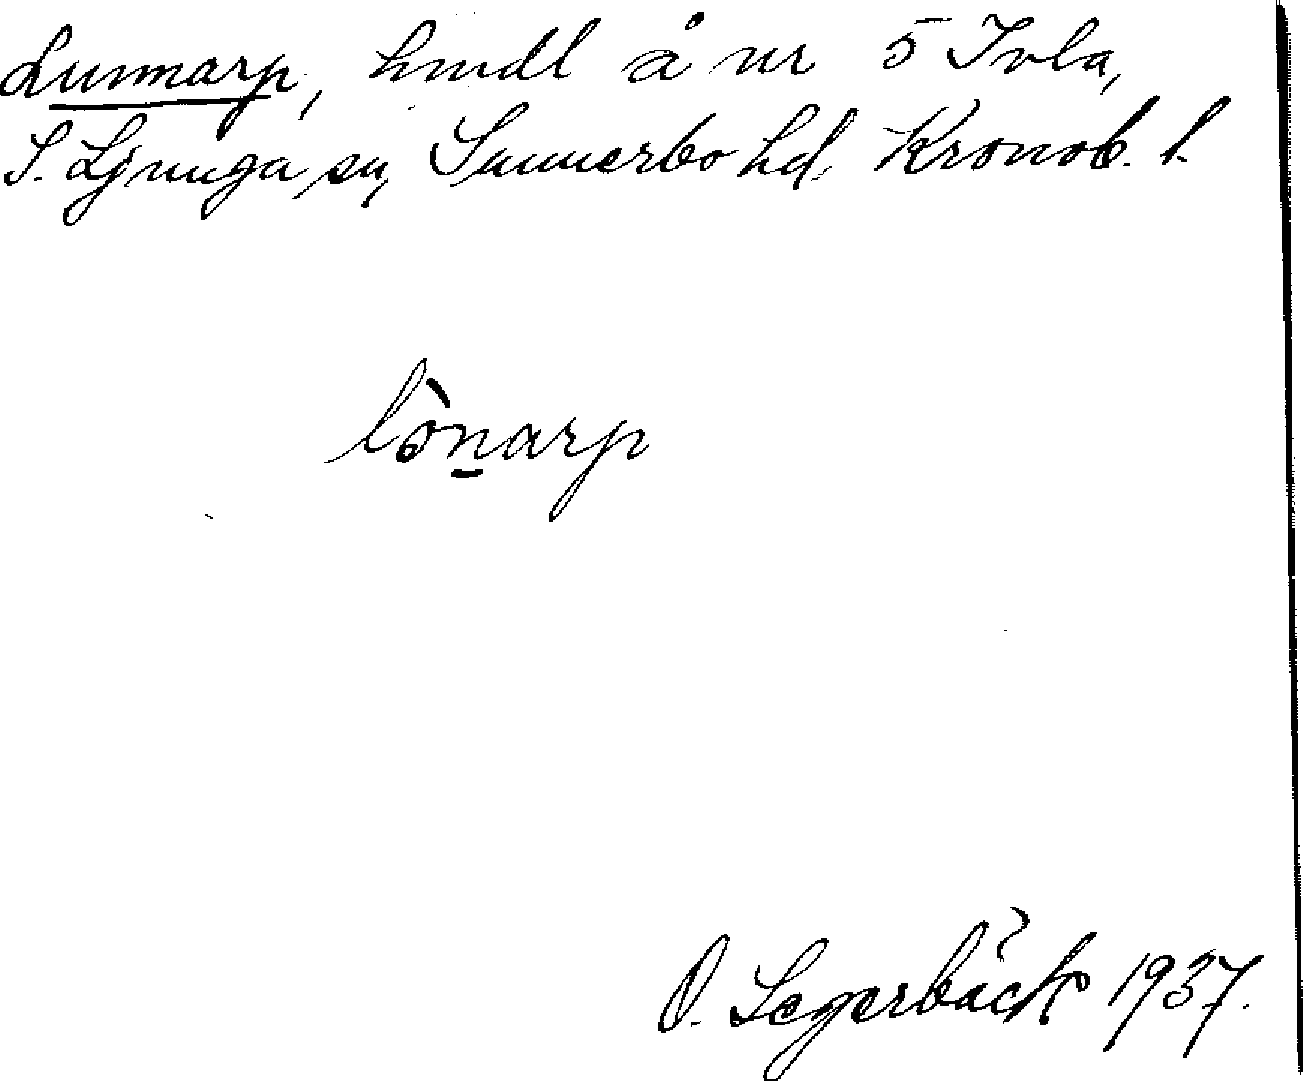 Lunnarp, hmdl å nr 5 Ivla,
S. Ljunga sn, Sunnerbo hd. Kronob. l.
lònarp
O. Segerbäck 1937.